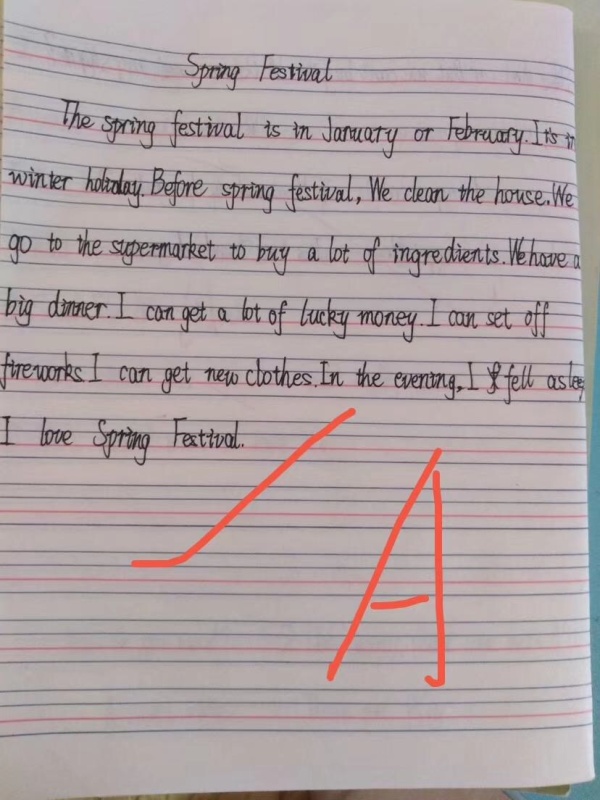 Spring Festival
The spring festival is in January or February. It's in
winter holiday. Before spring festival, We clean the house. We
go to the supermarket to buy a lot of ingredients. We have a
big dinner. I can get a lot of lucky money. I can set off
fireworks I can get new clothes. In the evening, I fell asleep
I love Spring Festival.
A